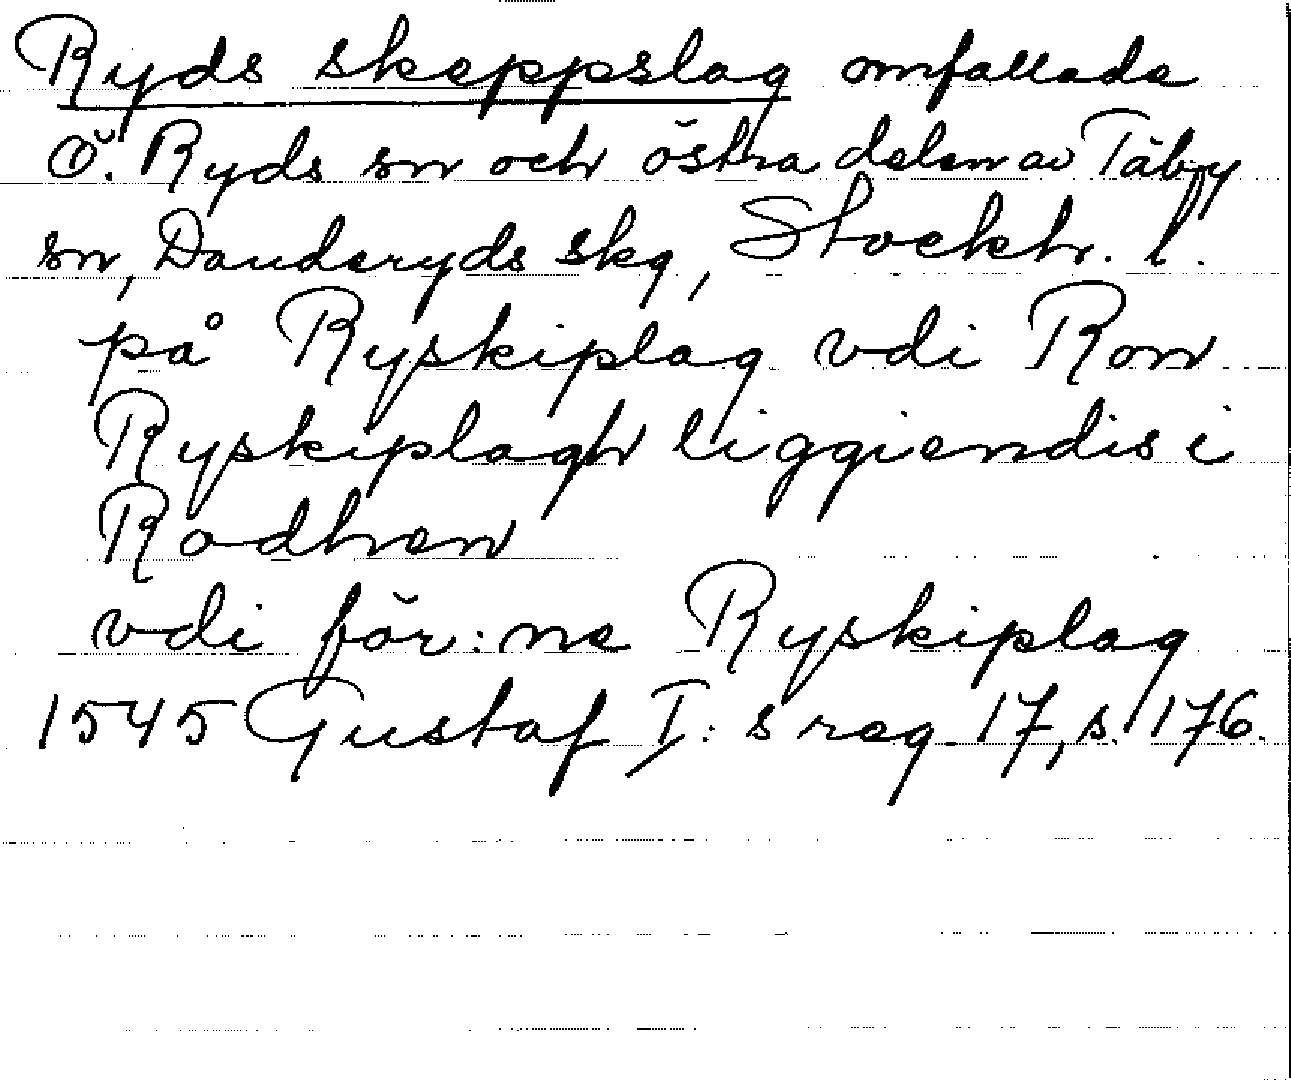 Ryds skeppslag omfattade
Ö. Ryds sn och östra delen av Täby
sn, Danderyds skg, Stockh. l.
på Ryskiplag vdi Ron
Ryskiplagh liggiendis i
Rodhen
vdi för:ne Ryskiplag
1545 Gustaf I:s reg. 17, s. 176.